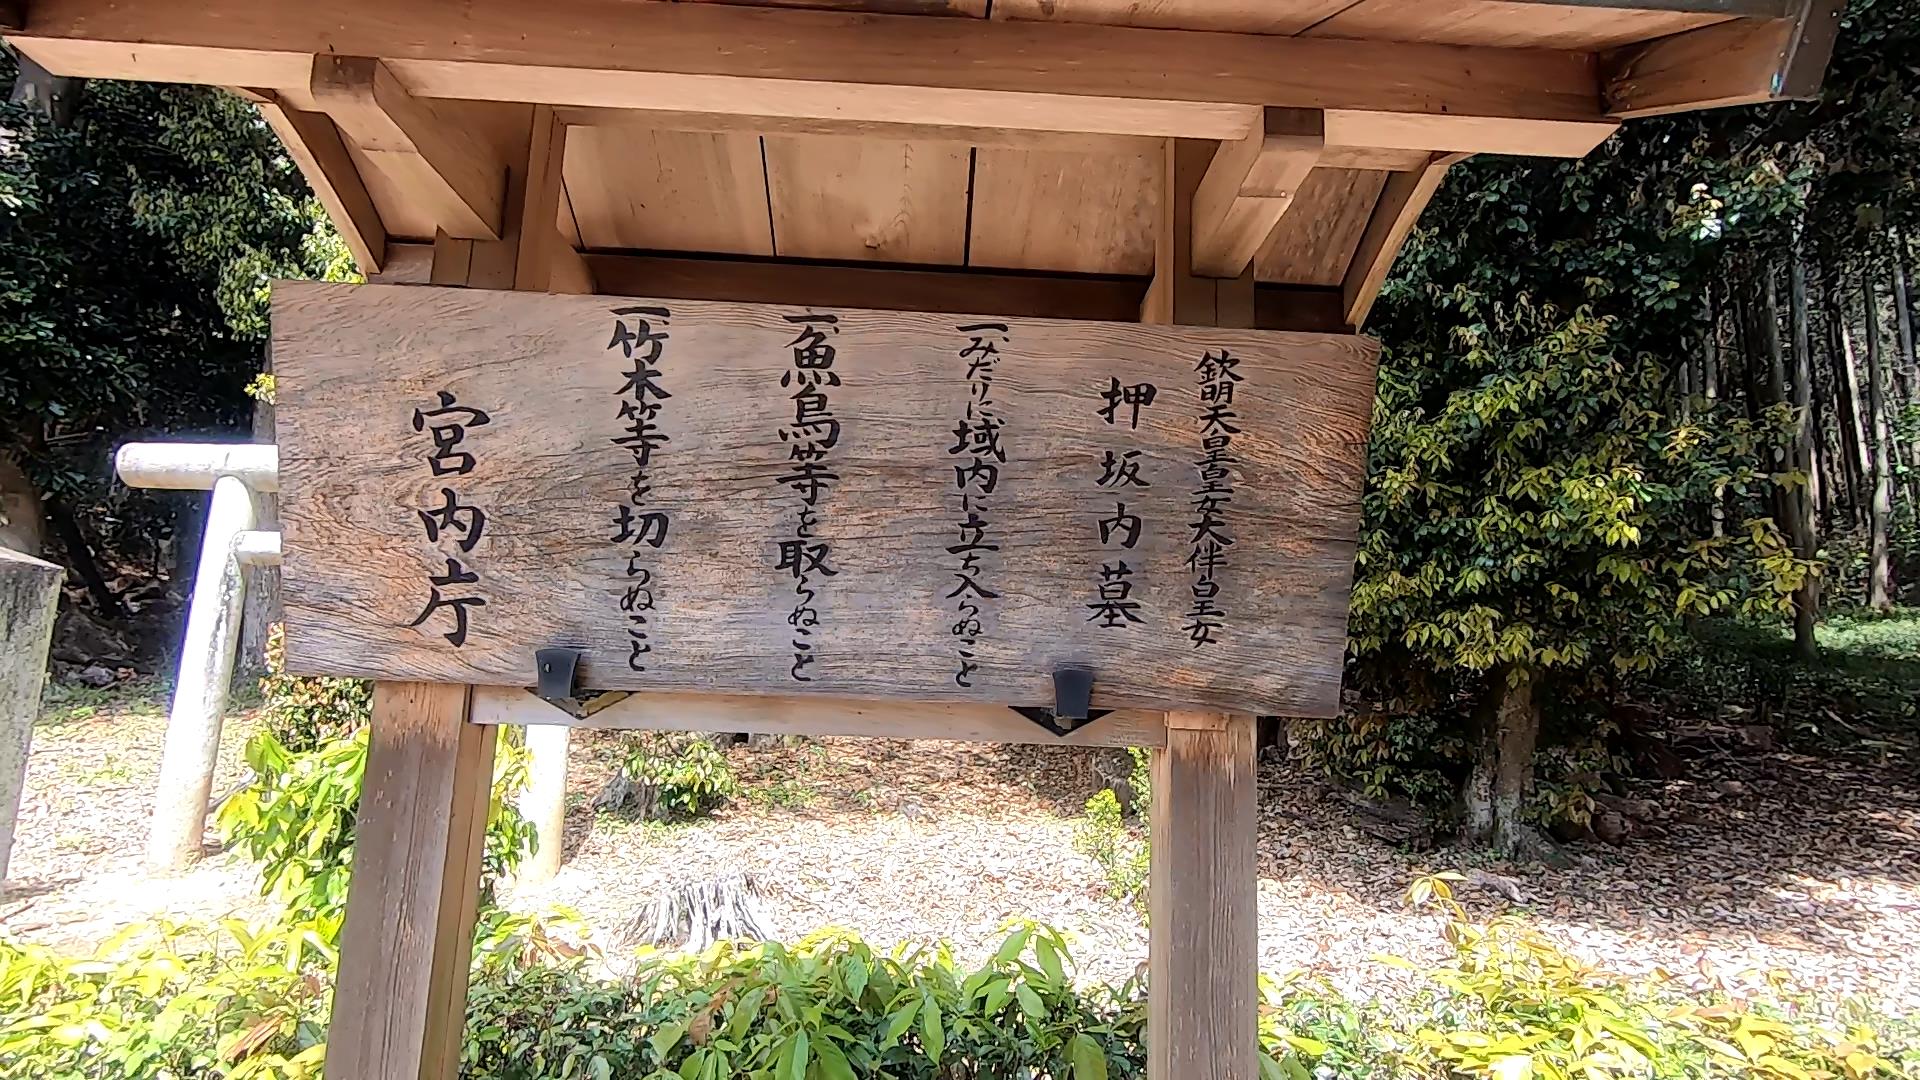 欽明天皇皇女大伴皇女
押坂内墓
一、みだりに域内に立ち入らぬこと
一、魚鳥等を取らぬこと
一、竹木等を切らぬこと
宮内庁